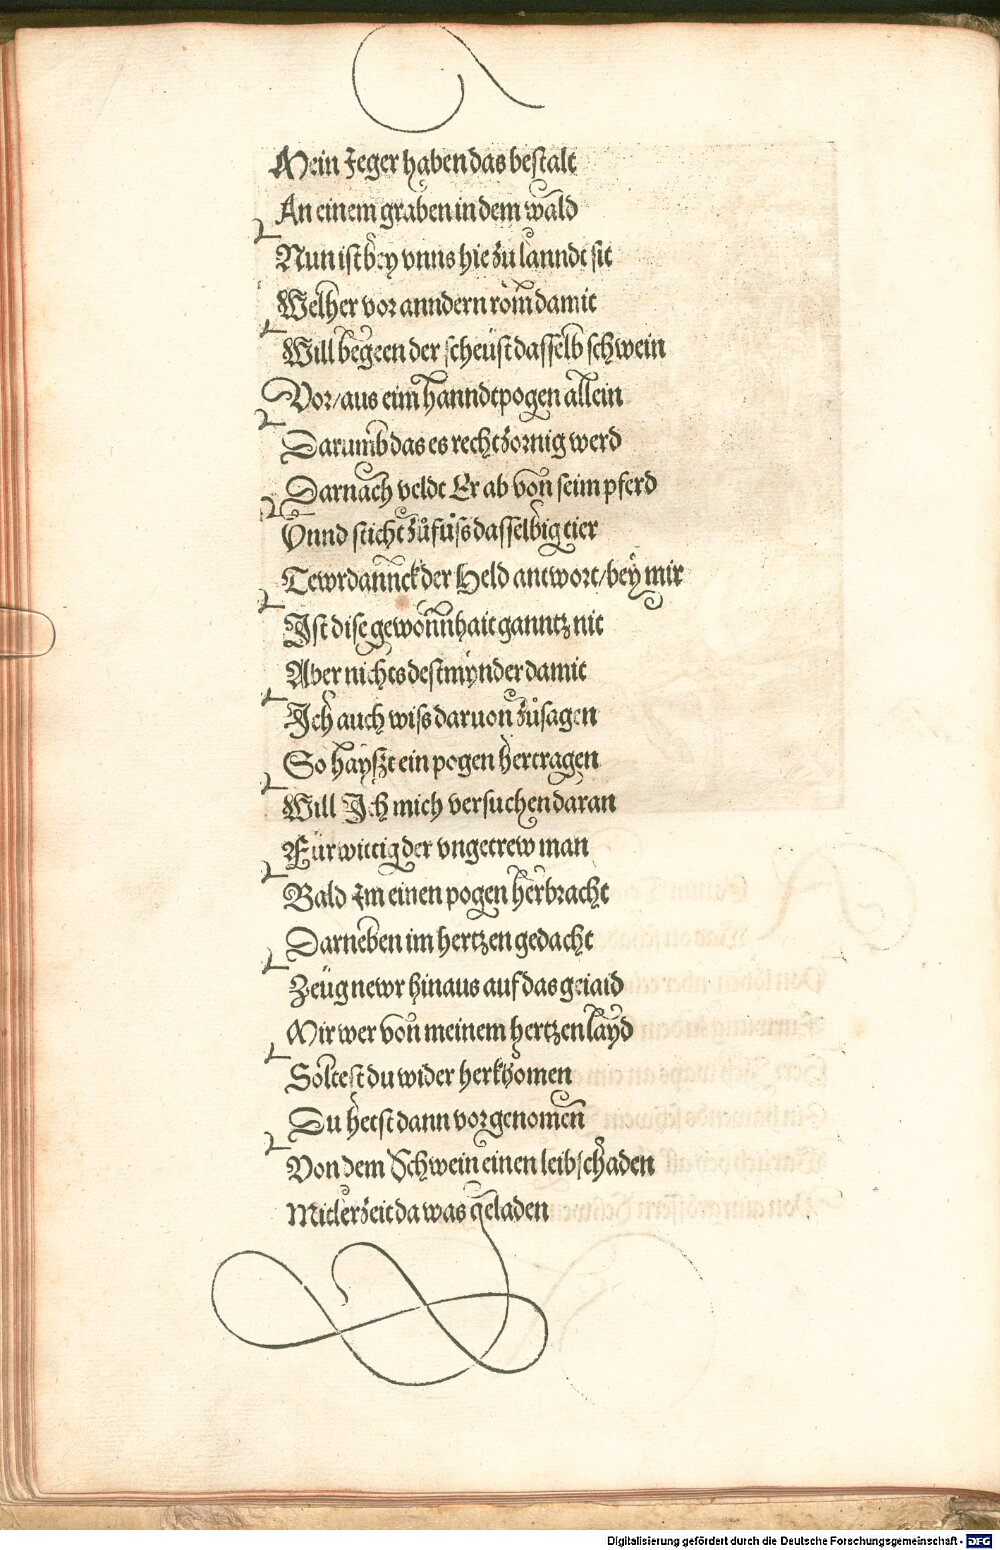 Mein Jeger haben das bestalt
An einem graben in dem wald
Nun ist bey vnns hie zu lanndt sit
Welher vor anndern röm damit
Will begeen der scheüst dasselb schwein
Vor/aus eim hanndtpogen allein
Darumb das es recht zornig werd
Darnach veldt Er ab von seim pferd
Vnnd sticht zůfůss dasselbig tier
Tewrdannck der Held antwort/bey mir
Ist dise gewonnhait ganntz nit
Aber nichts destmynder damit
Ich auch wiss daruon zůsagen
So hayszt ein pogen hertragen
Will Ich mich versuchen daran
Fürwittig der vngetrew man
Bald Im einen pogen herbracht
Darneben im hertzen gedacht
Zeüg newr hinaus auf das geiaid
Mir wer von meinem hertzen layd
Soltest du wider herkhomen
Du hetst dann vorgenomen
Von dem Schwein einen leibschaden
Mitlerzeit da was geladen
Digitalisierung gefördert durch die Deutsche Forschungsgemeinschaft - DFG